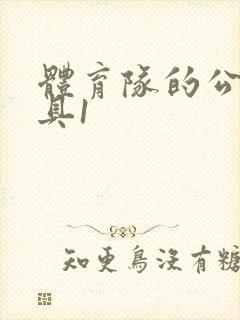 體育隊的公
具1
知更鳥沒有糖